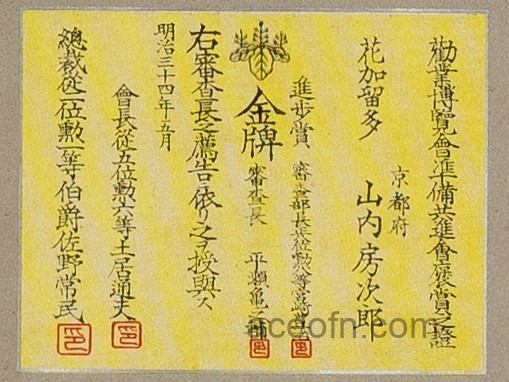 勸業博覽會準備共進會褒賞之證
京都府
花加留多 山内房次郎
進歩賞
審査部長
金牌
審査長 平瀬亀之輔
右審査長之薦告ニ依リ之ヲ授與ス
明治三十四年五月
會長從五位勲六等土居通夫
總裁從二位勲一等伯爵佐野常民
aceofn.com